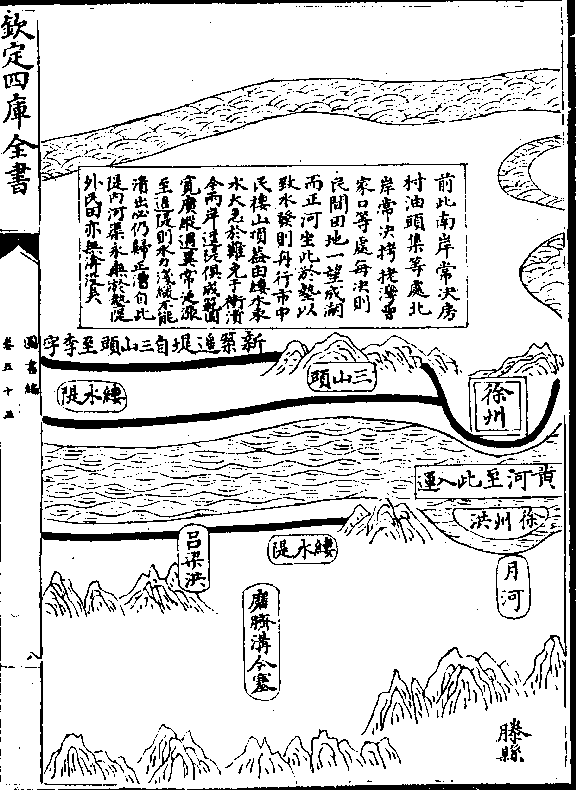 欽定四庫全書
圖書編
卷五十三
八
前此南岸常決房
村油頭集等處北
岸常決拷栳灣曹
家口等處每決則
民間田地一望成湖
而正河坐此淤墊以
致水發則舟行市中
民棲山頂蓋由縷水束
水太急難免于衝潰
今兩岸遥堤俱成範圍
寛廣縱遇異常泛漲
至遥隄則水力淺緩不能
潰出必仍歸正漕自此
隄内河渠永無淤墊隄
外民田亦無渰没矣
新築遥堤自三山頭至李字
三山頭
徐州
縷水隄
黄河至此入運
徐州洪
月河
縷水隄
吕梁洪
磨臍溝今塞
滕縣